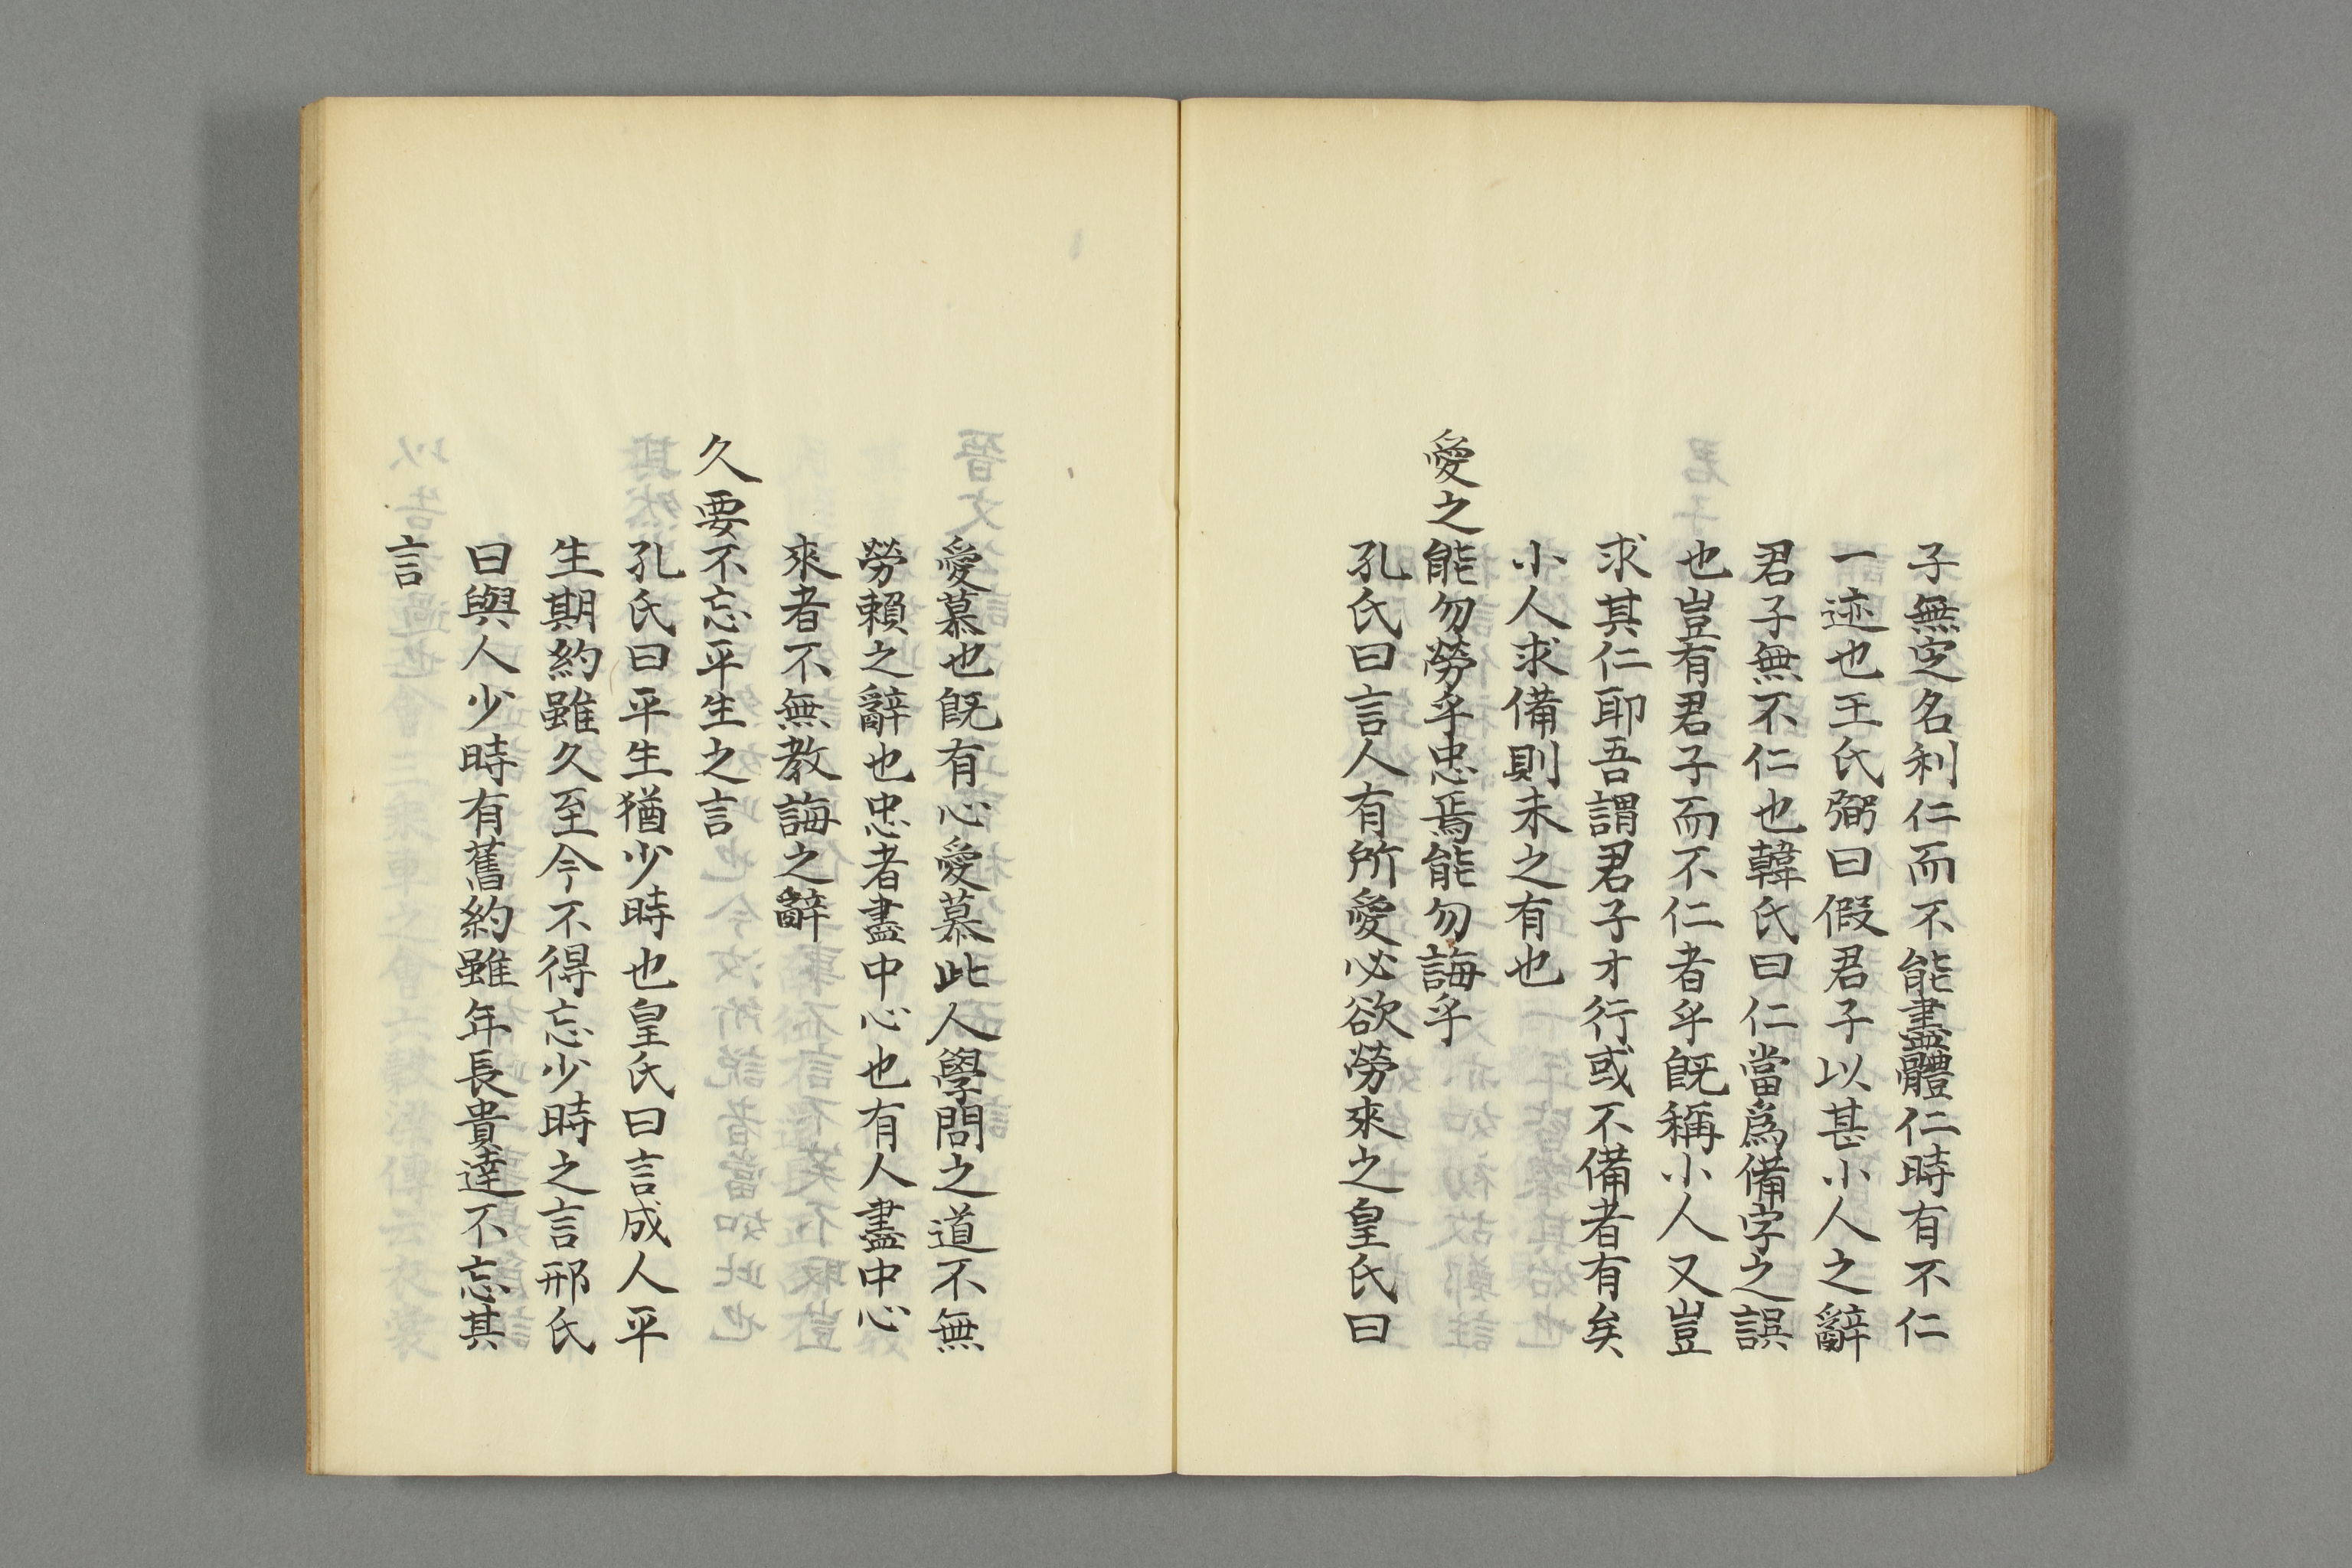 子無定名利仁而不能盡體仁時有不仁
一迹也王氏弼曰假君子以甚小人之辭
君子無不仁也韓氏曰仁當爲備字之誤
也豈有君子而不仁者乎既稱小人又豈
求其仁耶吾謂君子才行或不備者有矣
小人求備則未之有也
愛之能勿勞乎忠焉能勿誨乎
孔氏曰言人有所愛必欲勞來之皇氏曰
愛慕也既有心愛慕此人學問之道不無
勞賴之辭也忠者盡中心也有人盡中心
來者不無教誨之辭
久要不忘平生之言
孔氏曰平生猶少時也皇氏曰言成人平
生期約雖久至今不得忘少時之言邢氏
曰與人少時有舊約雖年長貴達不忘其
言